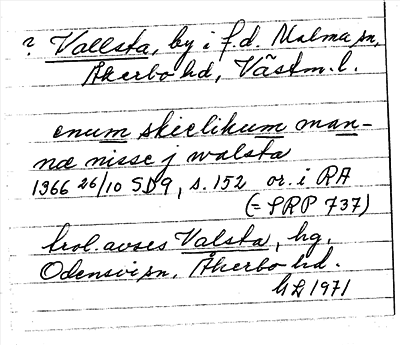 ? Vallsta, by i f.d. Malma sn,
Åkerbo hd, Västm. l.
enum skeelikum man-
næ nisse j walsta
1366 26/10 SD9, s. 152 or. i RA
(= SRP 737)
trol. avses Valsta, hg,
Odensvi sn. Åkerbo hd.
1971